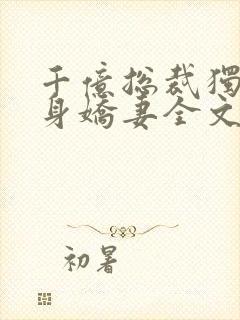 千億总裁獨
身嬌妻全文
初暑